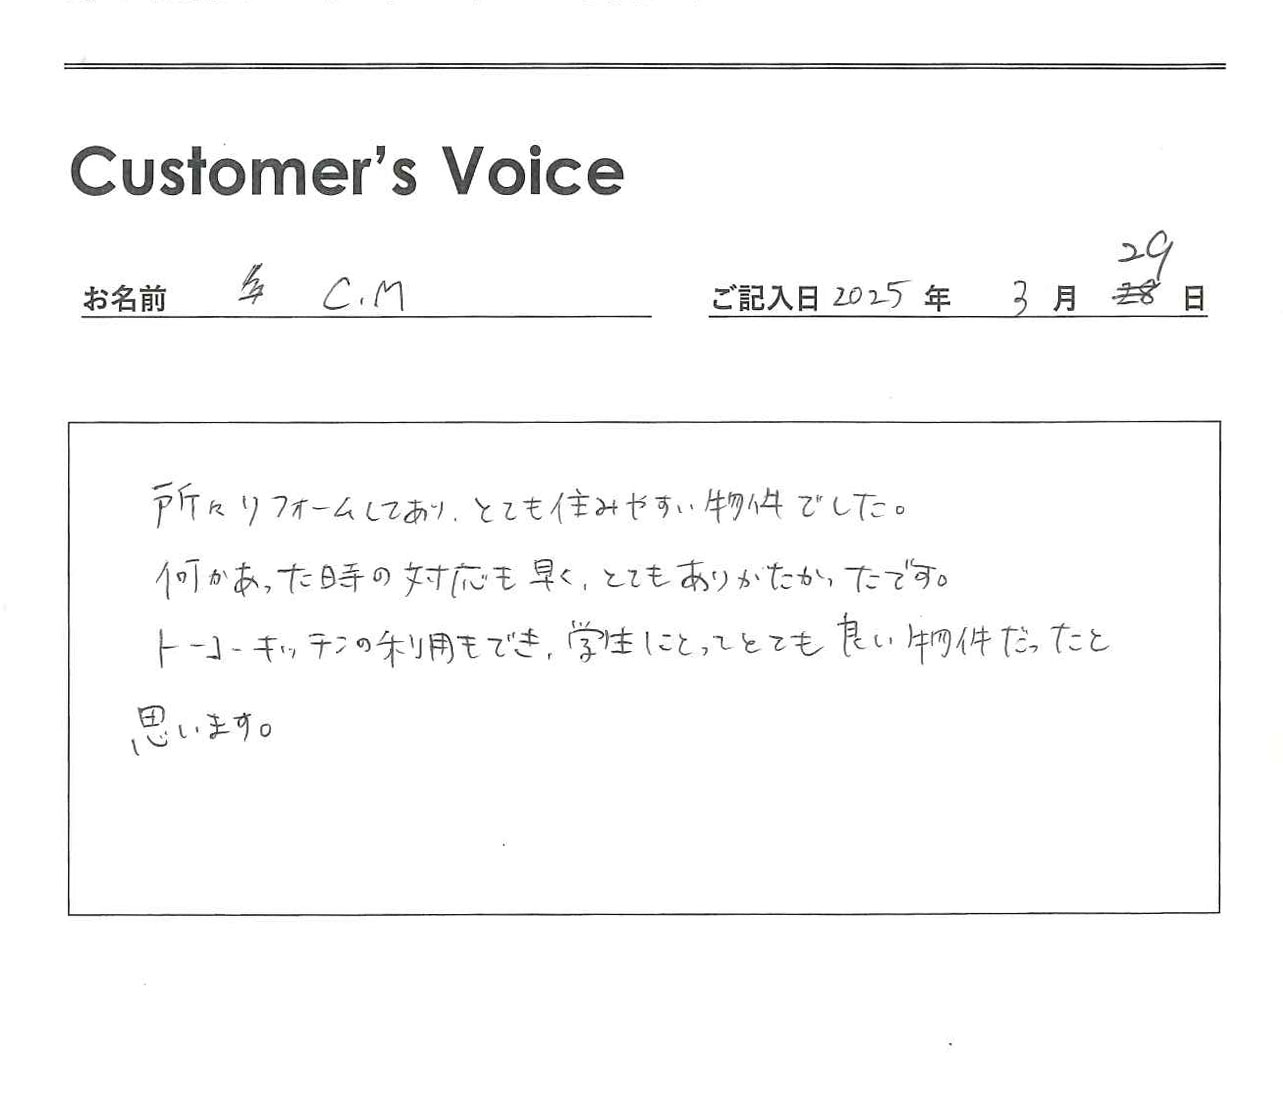 Customer's Voice
29
お名前 C.M ご記入日 2025 年 3 月 28 日
所々リフォームしてあり、とても住みやすい物件でした。
何かあった時の対応も早く、とてもありがたかったです。
トーコーキッチンの利用もでき、学生にとってとても良い物件だったと
思います。